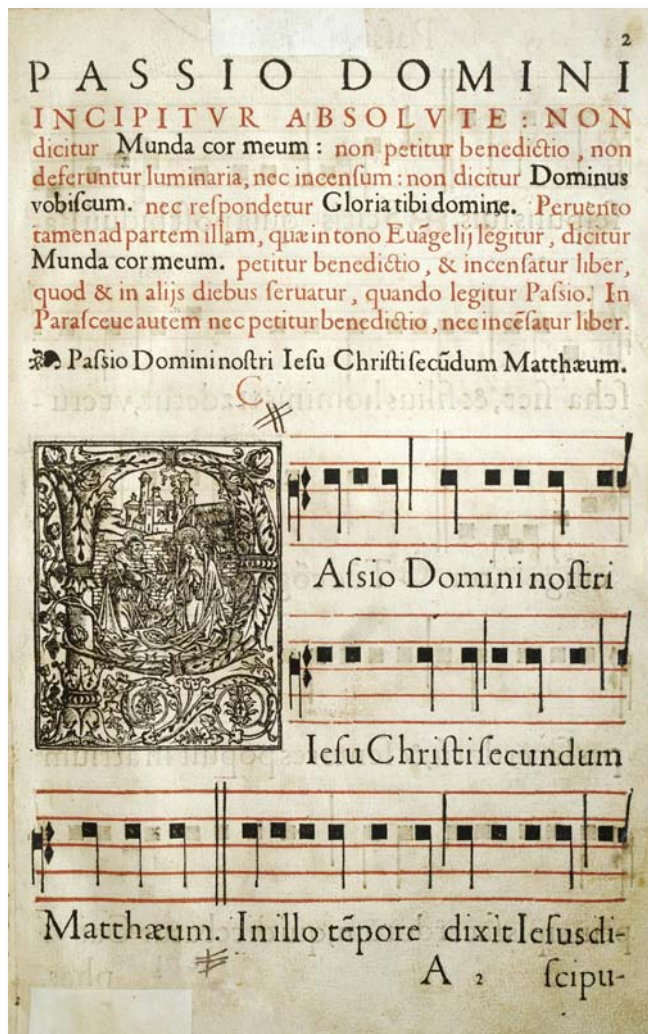 2
PASSIO DOMINI
INCIPITVR ABSOLVTE: NON
dicitur Munda cor meum: non petitur benedictio, non
deferuntur luminaria, nec incenſum: non dicitur Dominus
vobiſcum. nec reſpondetur Gloria tibi domine. Peruento
tamen ad partem illam, quæ in tono Euãgelij legitur, dicitur
Munda cor meum. petitur benedictio, & incenſatur liber,
quod & in alijs diebus ſeruatur, quando legitur Paſsio. In
Paraſceue autem nec petitur benedictio, nec incẽſatur liber.
Paſsio Domini noſtri Ieſu Chriſti ſecũdum Matthæum.
C
P
Aſsio Domini noſtri
Ieſu Chriſti ſecundum
Matthæum. In illo tẽpore dixit Ieſus di-
A 2 ſcipu-